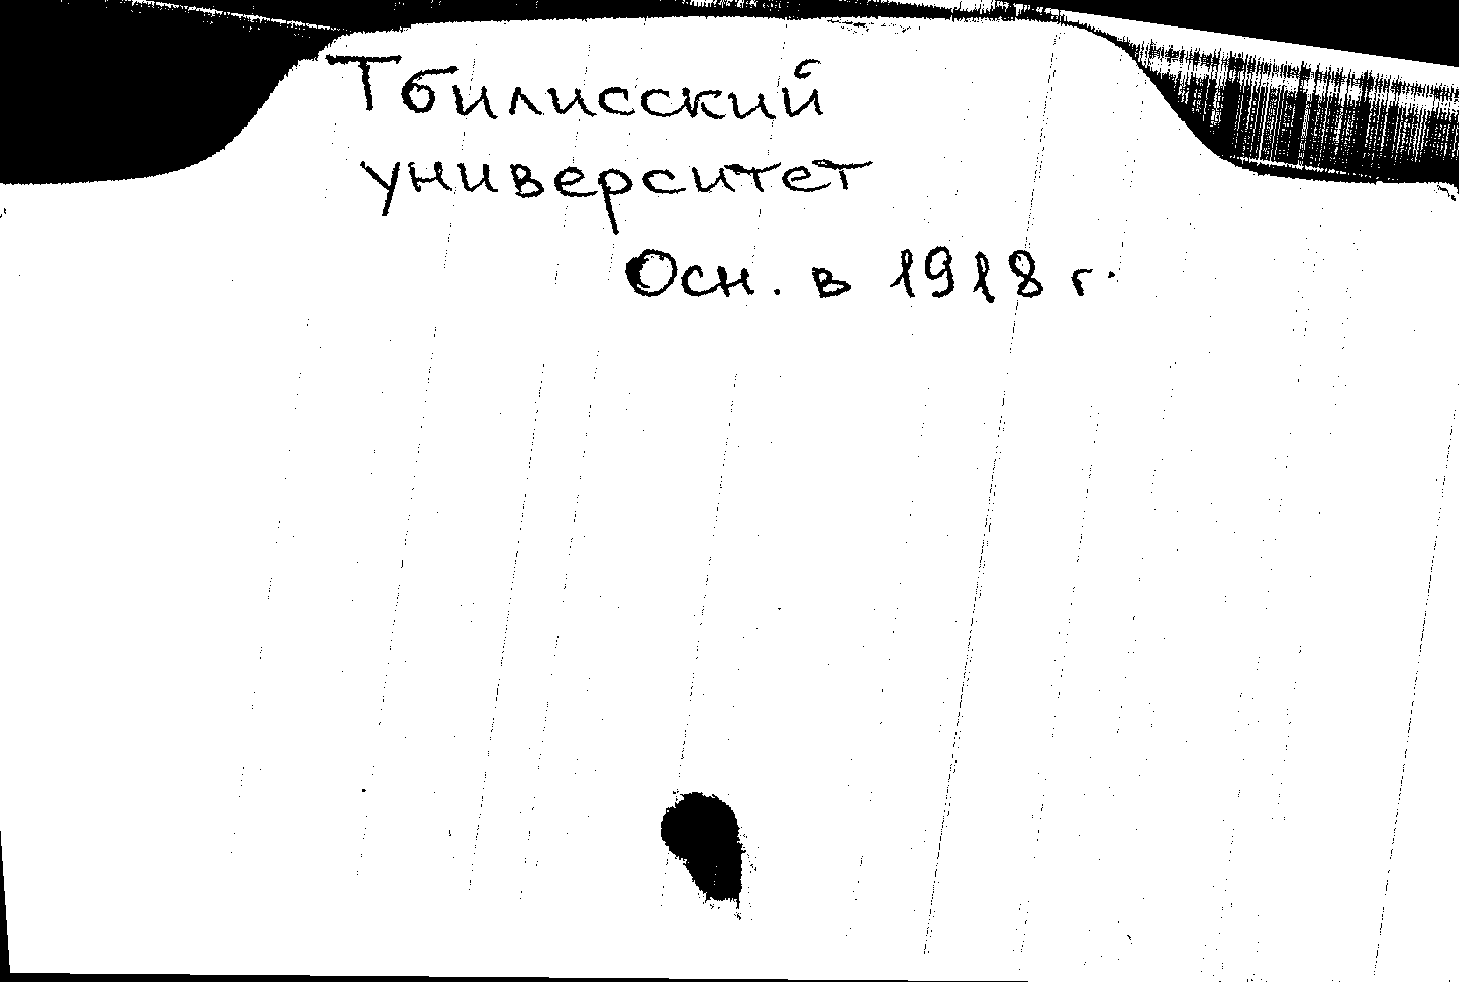 Тбилисский
университет
Осн. в 1918 г.